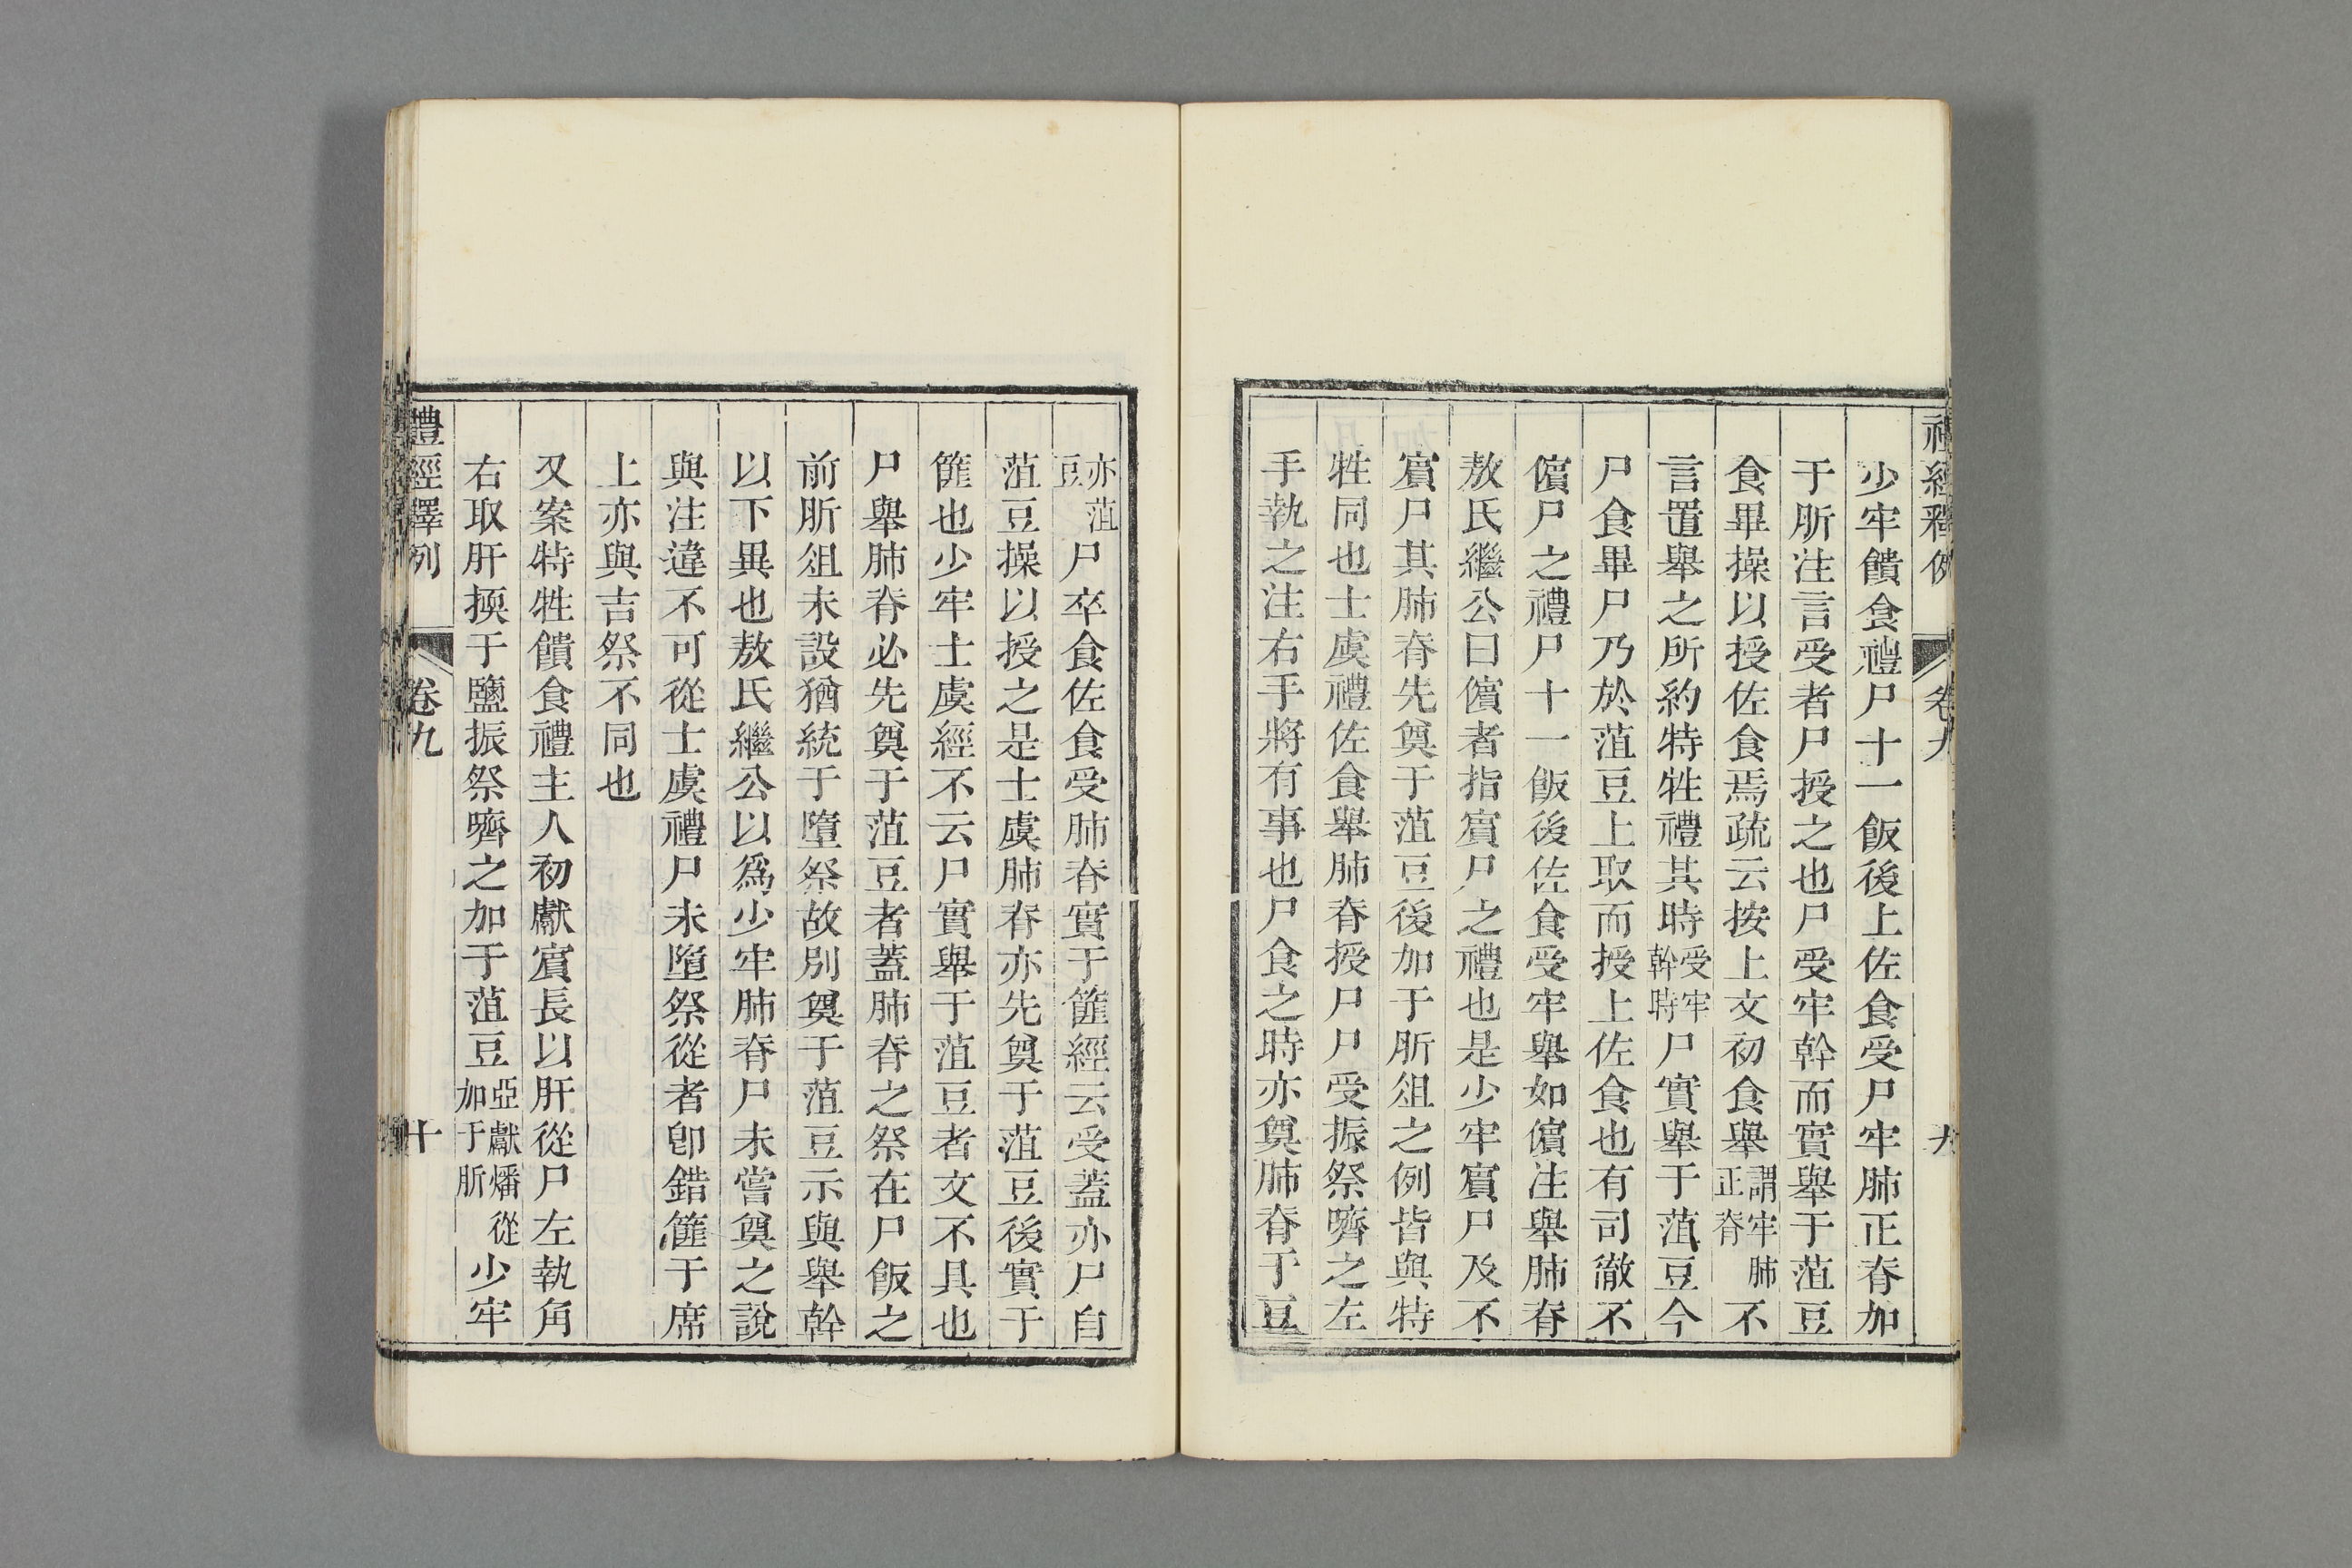 禮經釋例 卷九 九
少牢饋食禮尸十一飯後上佐食受尸牢肺正脊加
于肵注言受者尸授之也尸受牢幹而實舉于菹豆
食畢操以授佐食焉疏云按上文初食舉謂牢肺正脊不
言置舉之所約特牲禮其時受牢幹時尸實舉于菹豆今
尸食畢尸乃於菹豆上取而授上佐食也有司徹不
儐尸之禮尸十一飯後佐食受牢舉如儐注舉肺脊
敖氏繼公曰儐者指賓尸之禮也是少牢賓尸及不
賓尸其肺脊先奠于菹豆後加于肵俎之例皆與特
牲同也士虞禮佐食舉肺脊授尸尸受振祭嚌之左
手執之注右手將有事也尸食之時亦奠肺脊于豆
亦菹豆尸卒食佐食受肺脊實于篚經云受蓋亦尸自
菹豆操以授之是士虞肺脊亦先奠于菹豆後實于
篚也少牢士虞經不云尸實舉于菹豆者文不具也
尸舉肺脊必先奠于菹豆者蓋肺脊之祭在尸飯之
前肵俎未設猶統于墮祭故別奠于菹豆示與舉幹
以下異也敖氏繼公以爲少牢肺脊尸未嘗奠之說
與注違不可從士虞禮尸未墮祭從者卽錯篚于席
上亦與吉祭不同也
又案特牲饋食禮主人初獻賓長以肝從尸左執角
右取肝擩于鹽振祭嚌之加于菹豆亞獻燔從加于肵少牢
禮經釋例 卷九 十